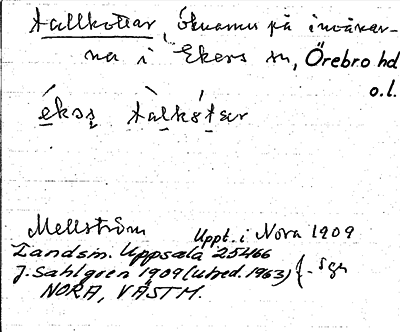 tallkottar, öknamn på invånar-
na i Ekers sn, Örebro hd
o.l.
ékoş tàlkátar
Mellström Uppt. i Nora 1909
Landsm. Uppsala 25466
J. Sahlgren 1909 (utred. 1963) f. sgn
NORA, VÄSTM.